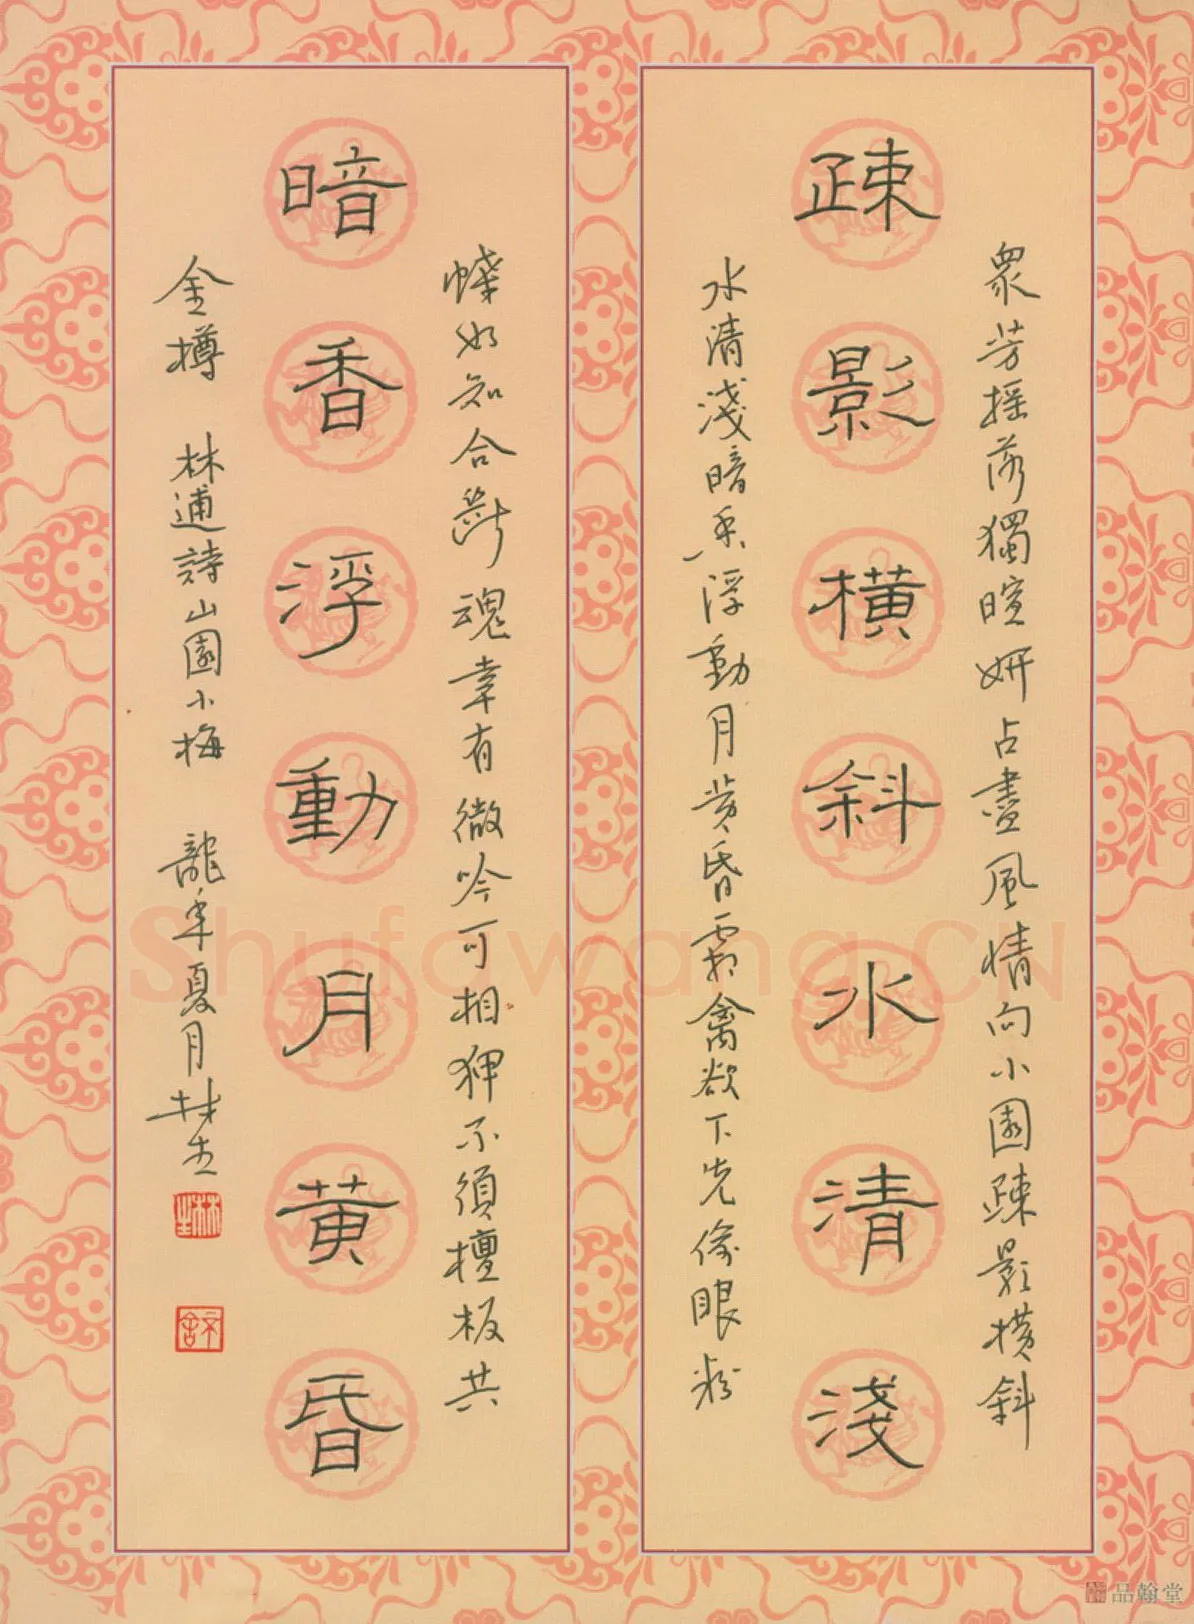 眾芳搖落獨暄妍占盡風情向小園疎影橫斜
疎影橫斜水清淺
水清淺暗香浮動月黃昏霜禽欲下先偷眼粉
蝶如知合斷魂幸有微吟可相狎不須檀板共
暗香浮動月黃昏
金樽 林逋詩山園小梅 龍年夏月
Shufawang.CN
品翰堂